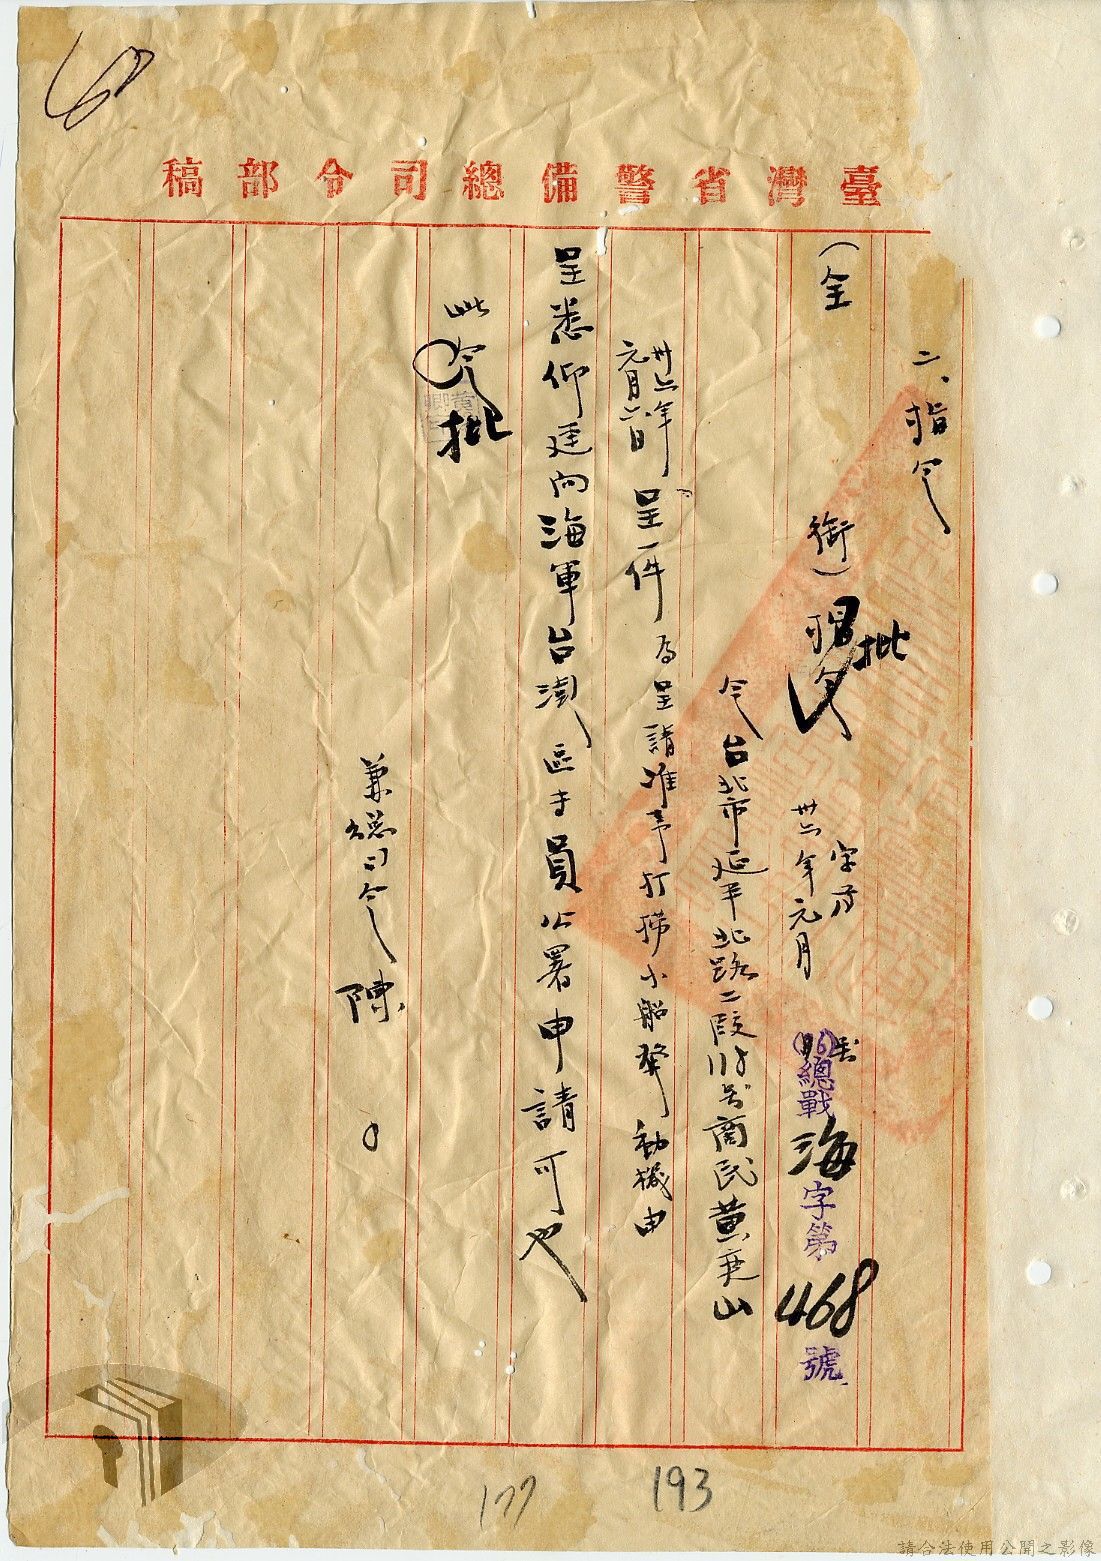 臺灣省警備總司令部稿
二、指令
(全銜)指令
批
字第 號
卅六年元月
(36)總戰海字第468號
令台北市延平北路二段118号商民黄
山
卅六年元月六日呈一件為呈請准予打捞小船發动機由
呈悉仰逕向海軍台澎區专員公署申請可也
此令
批
兼總司令陳
177
193
請合法使用公開之影像